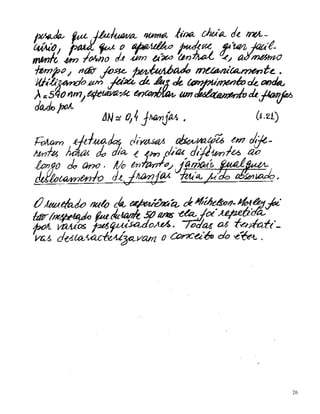 pesada que flutuava numa tina cheia de mer-
cúrio, para que o aparelho pudesse girar facil-
mente em torno de um eixo central e, ao mesmo
tempo, não fosse perturbado mecanicamente.
Utilizando um feixe de luz de comprimento de onda
λ = 590 nm, esperava-se encontrar um deslocamento de franjas
dado por
ΔN ≃ 0,4 franjas. (1.21)
Foram efetuadas diversas observações em dife-
rentes horas do dia e em dias diferentes ao
longo do ano. No entanto, jamais qualquer
deslocamento de franjas teria sido observado.
O resultado nulo da experiência de Michelson-Morley foi
tão inesperado que durante 50 anos ela foi repetida
por vários pesquisadores. Todas as tentati-
vas descaracterizavam o conceito do éter.
26